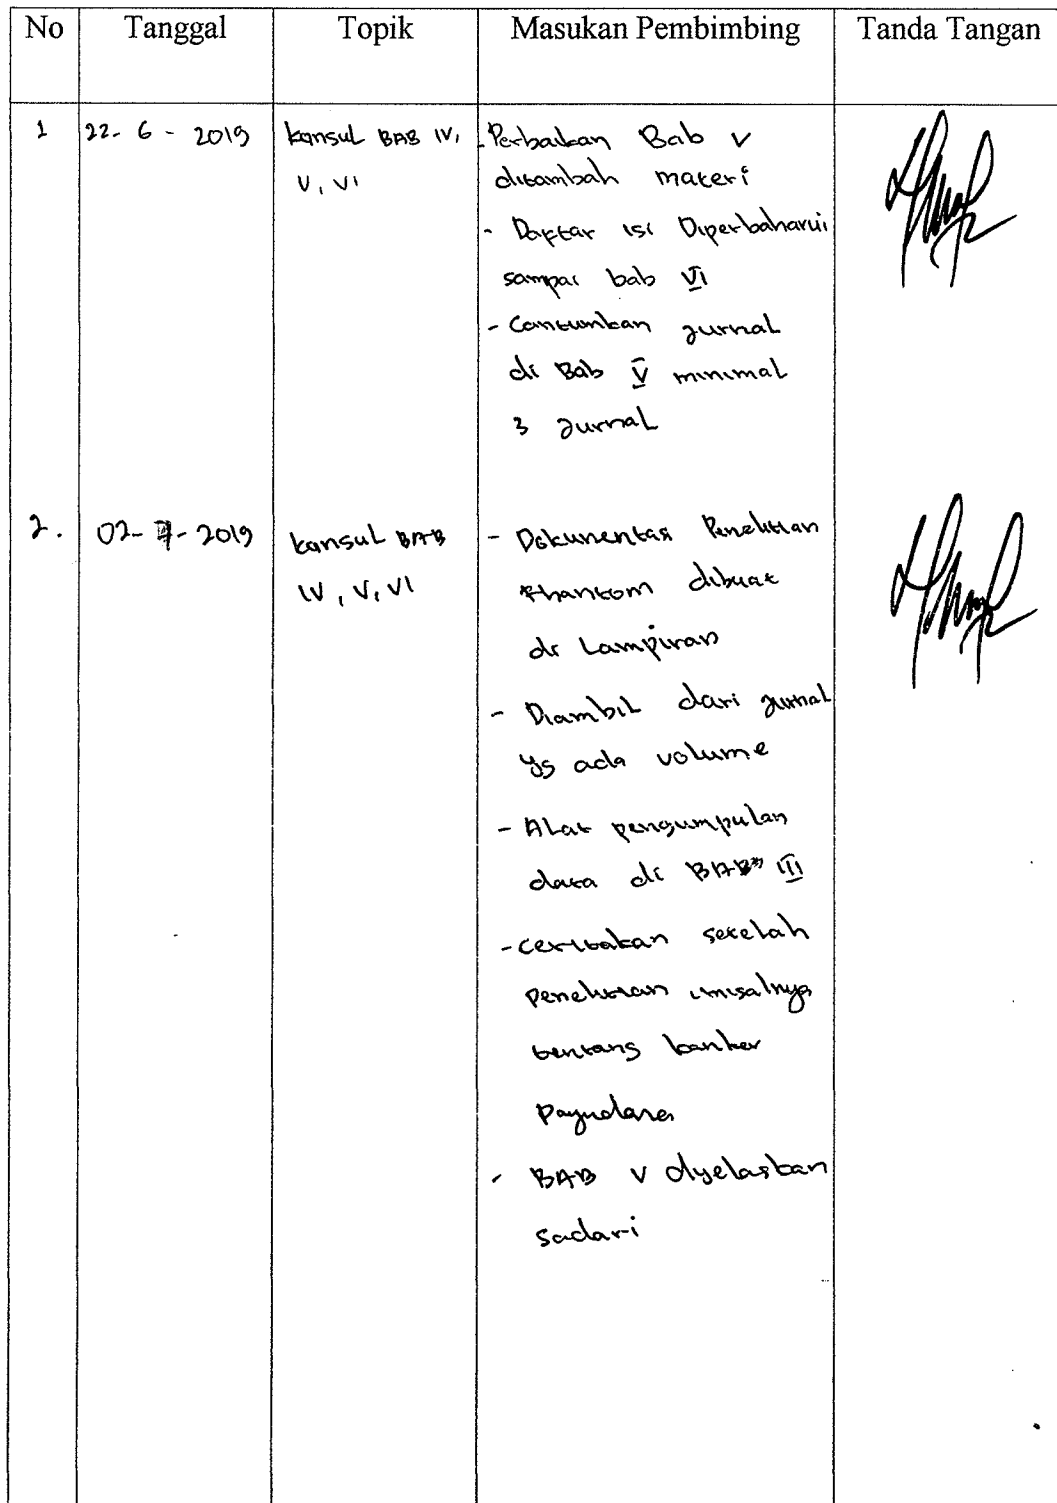 No Tanggal Topik Masukan Pembimbing Tanda Tangan
1 22-6-2019 konsul BAB IV, - Perbaikan Bab V
V, VI ditambah materi
- Daftar isi Diperbaharui
sampai bab VI
- Cantumkan jurnal
di Bab V minimal
3 jurnal
2. 02-7-2019 konsul BAB - Dokumentasi Penelitian
IV, V, VI Phantom dibuat
di Lampiran
- Diambil dari jurnal
yg ada volume
- Alat pengumpulan
data di BAB III
- ceritakan setelah
penelitian misalnya
tentang kanker
payudara
- BAB V dijelaskan
sadari